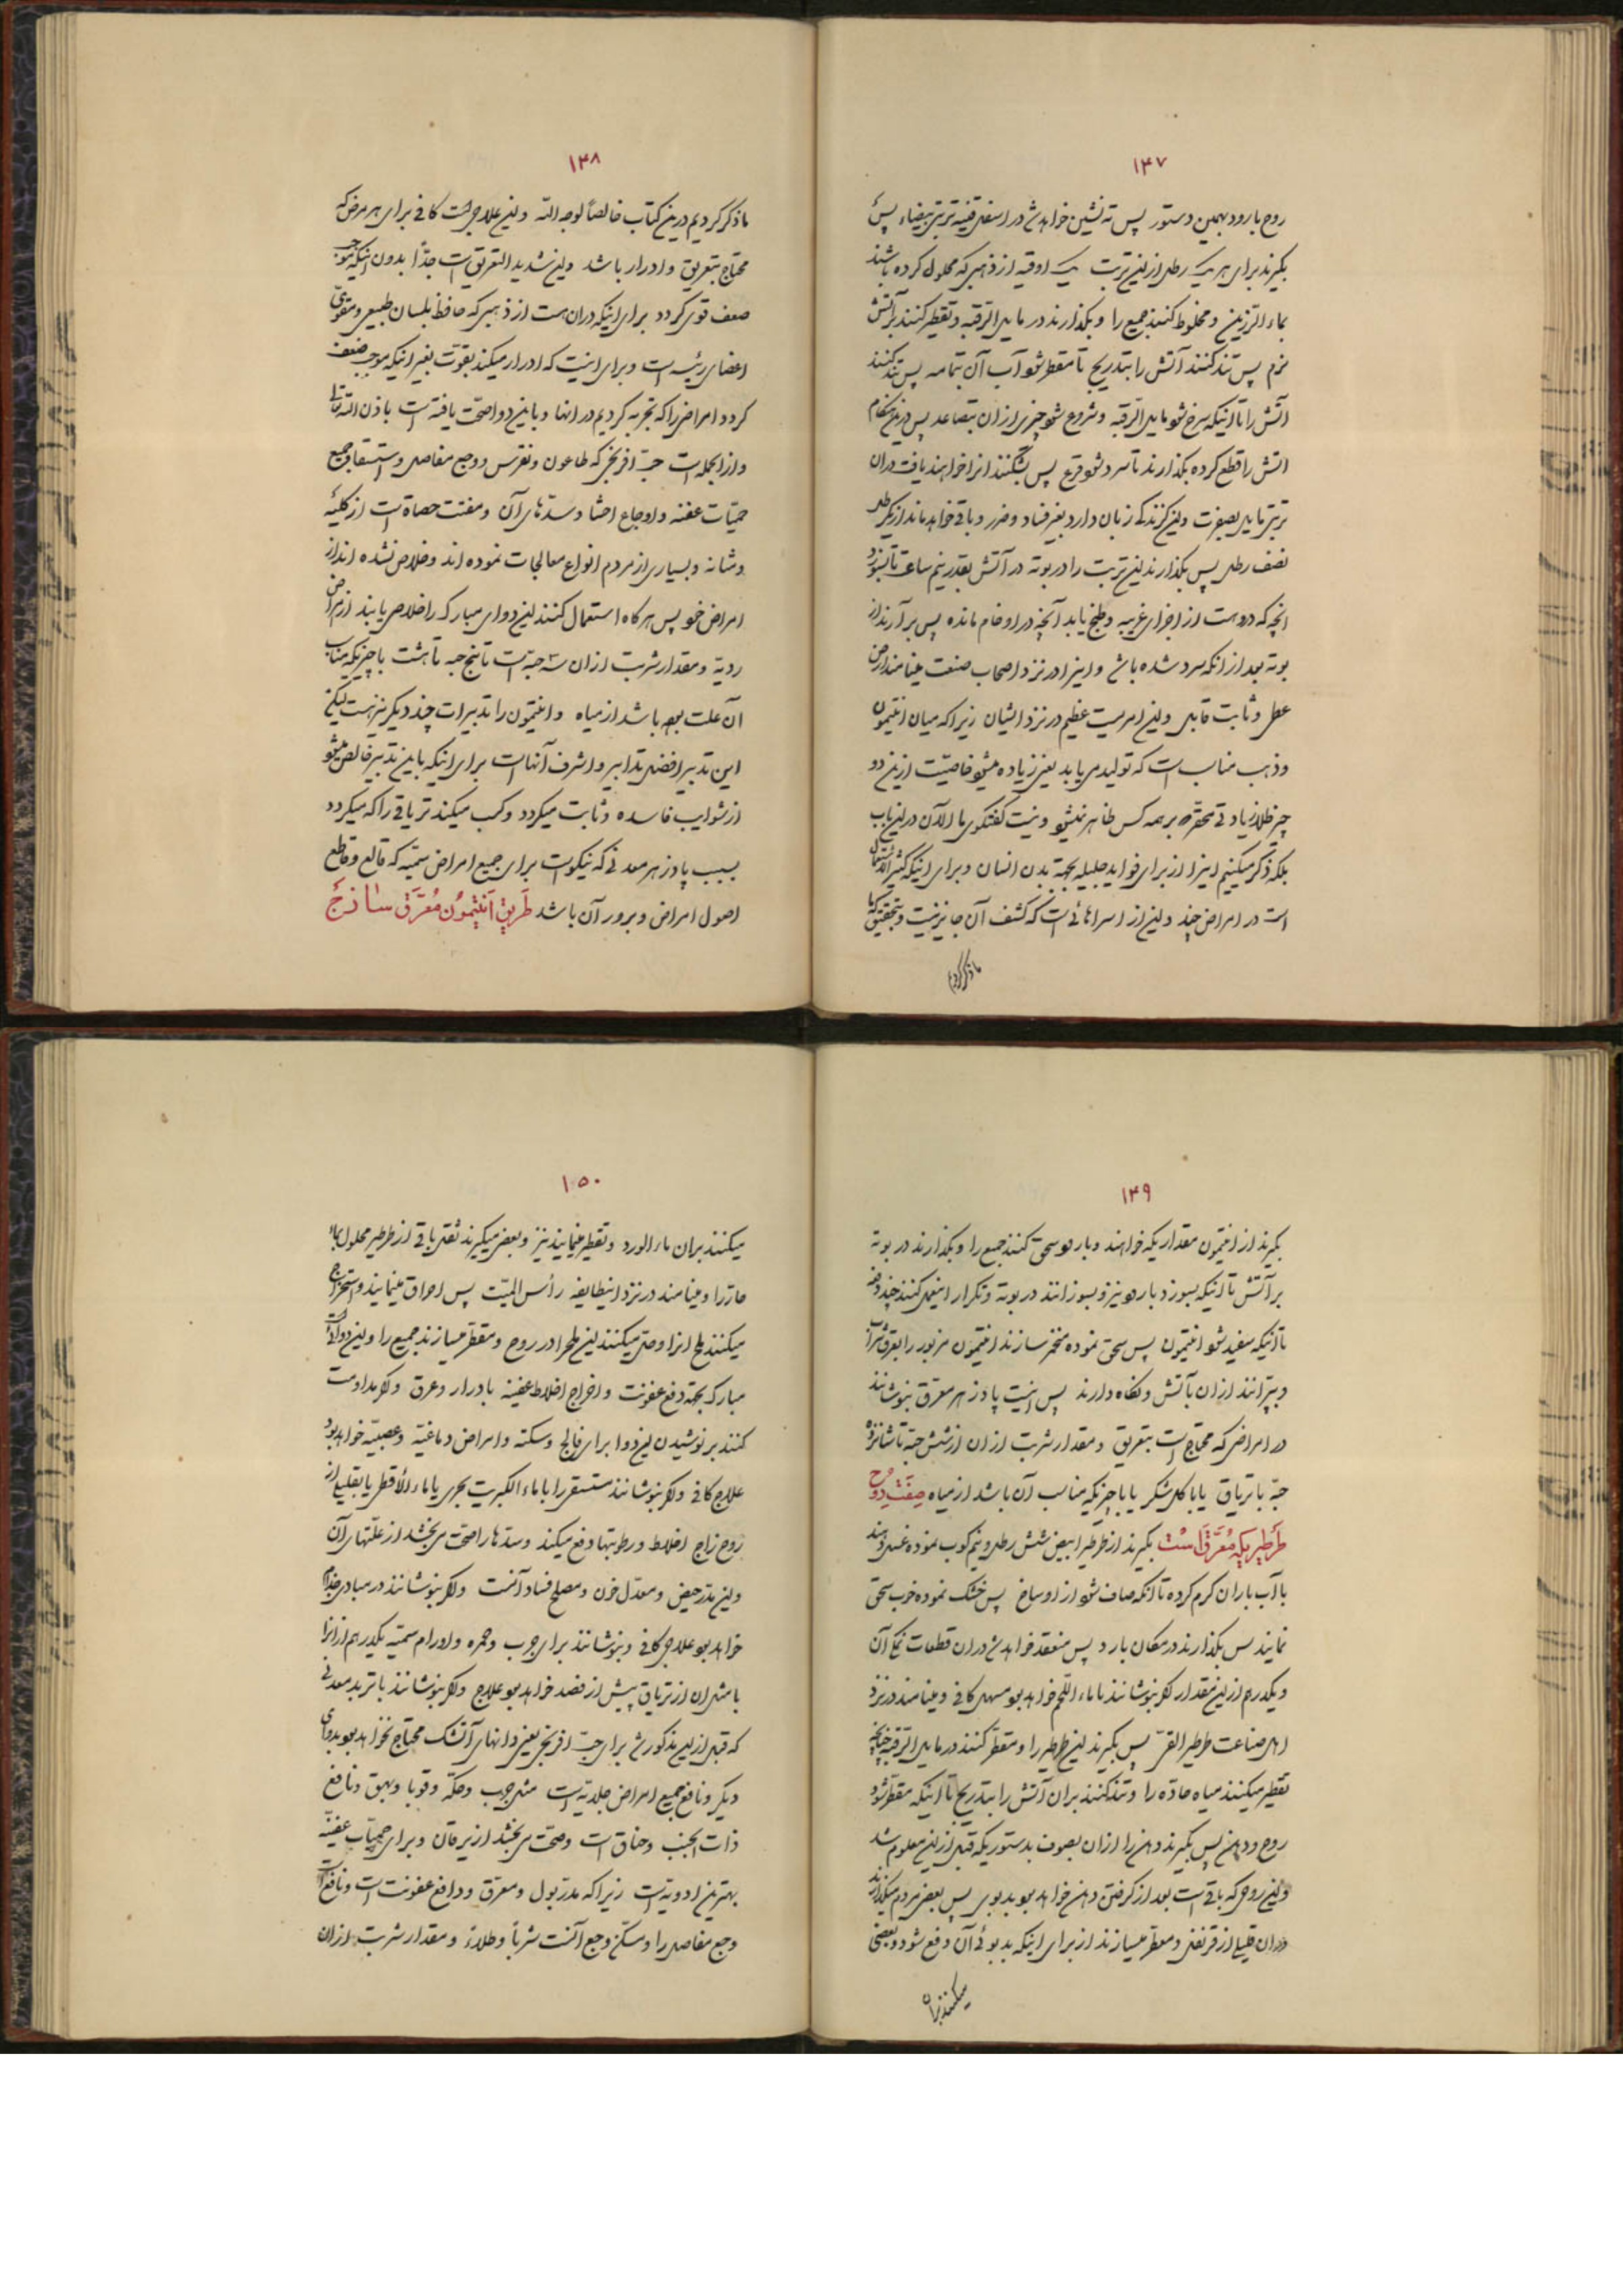 ۱۴۷
روح بارود بهمین دستور پس ته نشین خواهد شد در اسفل قنینه تربتی بیضاء پس
بگیرند برای هر یک رطل ازین تربت یک اوقیه از ذهبی که محلول کرده باشند
بماء الرزین و مخلوط کنند جمیع را و بگذارند در مایل الرقبه و تقطیر کنند بر آتش
نرم پس تند کنند آتش را بتدریج تا مقطر شود آب آن بتمامه پس تند کنند
آتش را تا اینکه سرخ شود مایل الرقبه و شروع شود چیزی از ان بتصاعد پس درین هنگام
آتش را قطع کرده بگذارند تا سرد شود قرع پس بشکنند انرا خواهند یافت دران
تربتی مایل بصفرت ولین گزندگی زبان دارد بغیر فساد و ضرر و باقی خواهد ماند از یک رطل
نصف رطل پس بگذارند این تربت را در بوته در آتش بقدر نیم ساعت تا بسوزد
انچه که دروست از اجزای غریبه و طبخ یابد آنچه در او خام مانده پس بر آرند از
بوته بعد از انکه سرد شده باشد و اینرا در نزد اصحاب صنعت مینامند ارض
عطل و ثابت قابل و این امریست عظیم در نزد ایشان زیرا که میان انتیمون
و ذهب مناسب است که تولید می یابد یعنی زیاده میشود خاصیت ازین دو
چیز بر همه کس ظاهر نمیشود و نیست گفتگوی ما الآن درین باب
بلکه ذکر میکنیم اینرا از برای فواید جلیله بجهة بدن انسان و برای اینکه کثیر الاستعمال
است در امراض چند و این از اسراهائی است که کشف آن جایز نیست و بتحقیق که ما
ما ذکر کردیم
۱۴۸
ما ذکر کردیم درین کتاب خالصاً لوجه الله و این علاجی است کافی برای هر مرض که
محتاج بتعریق و ادرار باشد و این شدید التعریق است جدّاً بدون اینکه موجب
ضعف قوی گردد برای اینکه دران هست از ذهبی که حافظ بلسان طبیعی و مقوی
اعضای رئیسه است و برای اینست که ادرار میکند بقوت بغیر اینکه موجب ضعف
گردد و امراض را که تجربه کردیم در انها و باین دوا صحّت یافته است باذن الله تعالی
و از انجمله است حبّ افرنجی که طاعون و نقرس و وجع مفاصل و استسقا و جمیع
حمیّات عفنه و اوجاع احشا و سدّهای آن و مفتت حصاة است از کلیه
و مثانه و بسیاری از مردم انواع معالجات نموده اند و خلاص نشده اند از
امراض خود پس هرگاه استعمال کنند این دوای مبارکه را خلاصی یابند از امراض
ردیة و مقدار شربت ازان سه حبّه است تا پنج حبه تا هشت با چیزیکه مناسب
آن علت بوده باشد از میاه و انتیمون را تدبیرات چند دیگر نیز هست لیکن
این تدبیر افضل تدابیر و اشرف آنهاست برای اینکه باین تدبیر خالص میشود
از شوایب فاسده و ثابت میگردد و کسب میکند تریاقی را که میگردد
بسبب پادزهر معدنی که نیکوست برای جمیع امراض سمیّه که قالع و قاطع
اصول امراض و برور آن باشد طریق انتیمون معرّق ساذج
۱۴۹
بگیرند از انتیمون مقداریکه خواهند و بارود سحق کنند جمیع را و بگذارند در بوته
بر آتش تا اینکه بسوزد بارود نیز و بسوزانند در بوته و تکرار اینعمل کنند چند دفعه
تا اینکه سفید شود انتیمون پس سحق نموده مخمّر سازند انتیمون مزبور را بعرق شراب
و بپرانند ازان بآتش و نگاه دارند پس اینست پادزهر معرّق بنوشانند
در امراضی که محتاج است بتعریق و مقدار شربت ازان از شش حبّه تا شانزده
حبّه با تریاق یا با گل شکر یا با چیزیکه مناسب آن باشد از میاه صفت روح
طرطیر یکه معرّق است بگیرند از طرطیر ابیض شش رطل و نیم کوب نموده غسل دهند
با آب باران گرم کرده تا آنکه صاف شود از اوساخ پس خشک نموده خوب سحق
نمایند پس بگذارند در مکان بارد پس منعقد خواهد شد دران قطعات نمک آن
و یکدرهم ازین مقدار اگر بنوشانند با ماء اللحم خواهد بود مسهل کافی و مینامند در نزد
اهل صناعت طرطیر القرّ پس بگیرند این طرطیر را و مقطّر کنند در مایل الرقبه چنانچه
تقطیر میکنند میاه حادّه را و تند کنند بران آتش را بتدریج تا اینکه مقطّر شود
روح و دهن پس بگیرند دهن را ازان بصوف بدستوریکه قبل ازین معلوم شد
و این روح که باقی است بعد از گرفتن دهن خواهد بود بدبوی پس بعض مردم میگذارند
دران قلیلی از قرنفل و مقطر میسازند از برای اینکه بد بوئی آن دفع شود و بعضی
میکنند بران
۱۵۰
میکنند بران ماء الورد و تقطیر مینمایند نیز و بعضی میگیرند ثقل باقی از طرطیر محلول بماء
حارّ را و مینامند در نزد اینطایفه رأس المیّت پس احراق مینمایند و استخراج
میکنند ملح انرا و حل میکنند این ملح را در روح و مقطّر میسازند جمیع را و این دوائیست
مبارک بجهة دفع عفونت و اخراج اخلاط عفینه بادرار و عرق و اگر مداومت
کنند بر نوشیدن این دوا برای فالج و سکته و امراض دماغیّه و عصبیّه خواهد بود
علاج کافی و اگر بنوشانند مستسقی را با ماء الکبریت بحری یا با ماء الاقطی یا بقلیلی از
روح زاج اخلاط و رطوبتها دفع میکند و سدّها را صحّت می بخشد از علّتهای آن
و این مدرّ حیض و معدّل خون و مصلح فساد آنست و اگر بنوشانند در مبادی جذام
خواهد بود علاجی کافی و بنوشانند برای جرب و حمره و اورام سمیّه یکدرهم ازانرا
با مثل ان از تریاق پیش از فصد خواهد بود علاج و اگر بنوشانند با تربد معدنی
که قبل ازین مذکور شد برای حبّ افرنجی یعنی دانهای آتشک محتاج نخواهد بود بدوای
دیگر و نافع جمیع امراض جلدیّه است مثل جرب و حکّه و قوبا و بهق و نافع
ذات الجنب و خناق است و صحّت می بخشد از یرقان و برای حمیّات عفینّه
بهترین ادویّه است زیرا که مدرّ بول و معرّق و دافع عفونت است و نافع است
وجع مفاصل را و مسکّن وجع آنست شرباً و طلاءً و مقدار شربت ازان